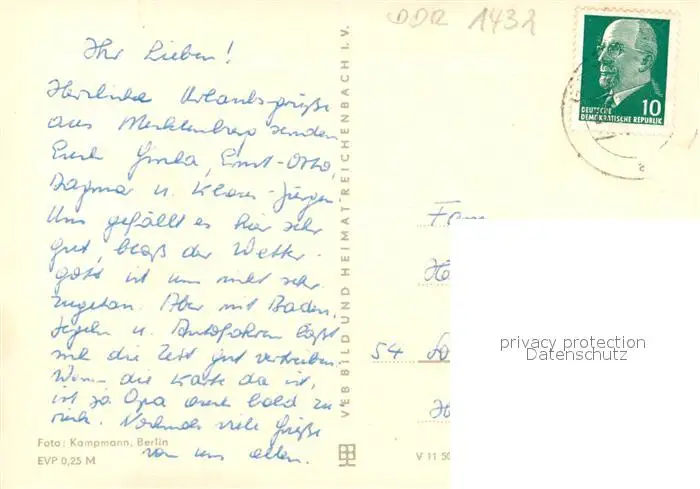 Ihr Lieben!
Herzliche Urlaubsgrüße
aus Mecklenburg senden
Euch Gisela, Ernst-Otto,
Dagmar u. Klaus-Jürgen
Uns gefällt es hier sehr
gut, bloß der Wetter-
gott ist uns nicht sehr
zugetan. Aber mit Baden,
Segeln u. Autofahren läßt
sich die Zeit gut vertreiben.
Wenn die Karte da ist,
ist ja Opa auch bald zu-
rück. Nochmals viele Grüße
von uns allen.
Foto: Kampmann, Berlin
EVP 0,25 M
VEB BILD UND HEIMAT REICHENBACH I. V.
DDR 1432
DEUTSCHE
DEMOKRATISCHE REPUBLIK
10
Fam
54
V 11 50
privacy protection
Datenschutz